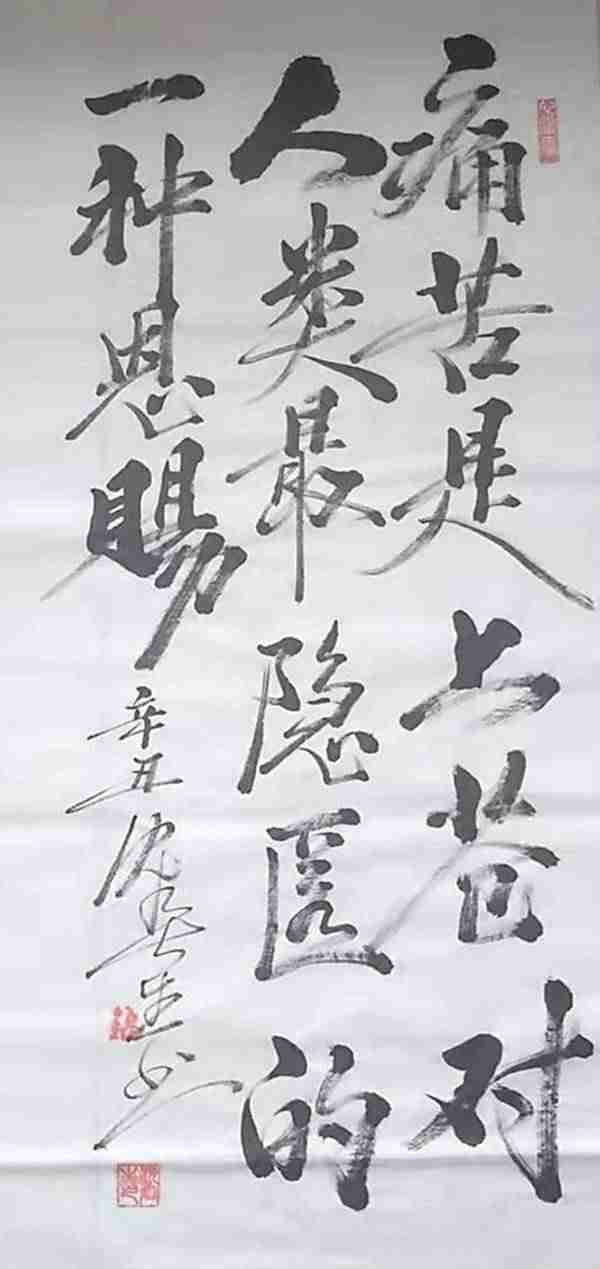 痛苦是上苍对
人类最隐匿的
一种恩賜
辛丑沈生书